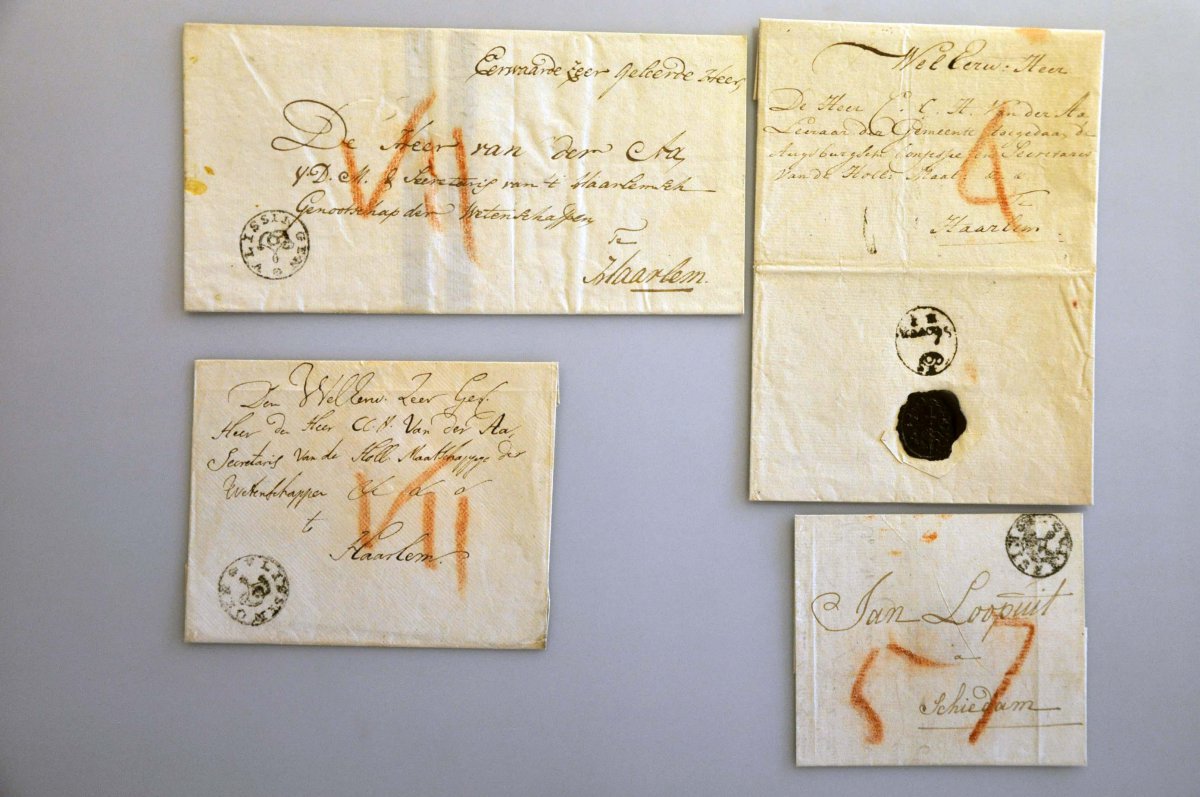 Eerwaarde zeer geleerde Heer,
De Heer van der Aa,
V.D.M. & Secretaris van 't Haarlemsch
Genootschap der Wetenschappen,
Te
Haarlem.
VII
VLISSINGEN
6
WelEerw. Heer
De Heer C. H. van der Aa
Leeraar der Gemeente toegedaan de
Augsburgsche Confessie en Secretaris
van de Holl. Maats &
Te
Haarlem
4
Den WelEerw. Zeer Gel.
Heer den Heer C.H. Van der Aa,
Secretaris van de Holl. Maatschappye der
Wetenschappen &
te
Haarlem.
VII
VLISSINGEN
Jan Loopuit
a
Schiedam
7